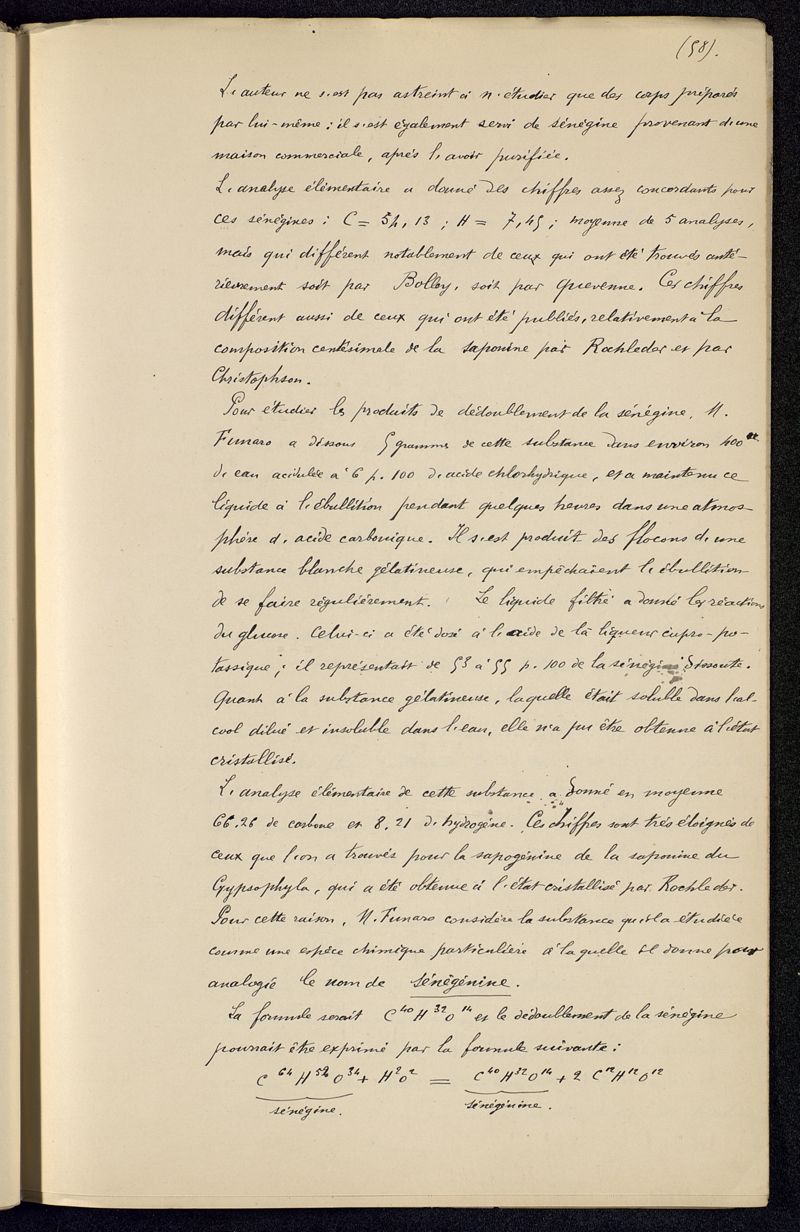 (58).
L'auteur ne s'est pas astreint à n'étudier que des corps préparés
par lui-même ; il s'est également servi de sénégine provenant d'une
maison commerciale, après l'avoir purifiée.
L'analyse élémentaire a donné des chiffres assez concordants pour
ces sénégines : C = 54,13 ; H = 7,45 ; moyenne de 5 analyses,
mais qui différent notablement de ceux qui ont été trouvés anté-
rieurement soit par Bolley, soit par Quevenne. Ces chiffres
différent aussi de ceux qui ont été publiés, relativement à la
composition centésimale de la saponine par Rochleder et par
Christophson.
Pour étudier les produits de dédoublement de la sénégine, M.
Funaro a dissous 5 grammes de cette substance dans environ 400 cc
d'eau acidulée à 6 p. 100 d'acide chlorhydrique, et a maintenu ce
liquide à l'ébullition pendant quelques heures dans une atmos-
phère d'acide carbonique. Il s'est produit des flocons d'une
substance blanche gélatineuse, qui empêchaient l'ébullition
de se faire régulièrement. Le liquide filtré a donné les réactions
du glucose. Celui-ci a été dosé à l'aide de la liqueur cupro-po-
tassique ; il représentait de 53 à 55 p. 100 de la sénégine dissoute.
Quant à la substance gélatineuse, laquelle était soluble dans l'al-
cool dilué et insoluble dans l'eau, elle n'a pu être obtenue à l'état
cristallisé.
L'analyse élémentaire de cette substance a donné en moyenne
66.26 de carbone et 8.21 d'hydrogène. Ces chiffres sont très éloignés de
ceux que l'on a trouvés pour la sapogénine de la saponine du
Gypsophyla, qui a été obtenue à l'état cristallisé par Rochleder.
Pour cette raison, M. Funaro considère la substance qu'il a étudiée
comme une espèce chimique particulière à laquelle il donne pour
analogie le nom de sénégénine.
La formule serait C⁴⁰H³²O¹⁴ et le dédoublement de la sénégine
pourrait être exprimé par la formule suivante :
C⁶⁴H⁵²O³⁴ + H²O² = C⁴⁰H³²O¹⁴ + 2 C¹²H¹²O¹²
sénégine. sénégénine.